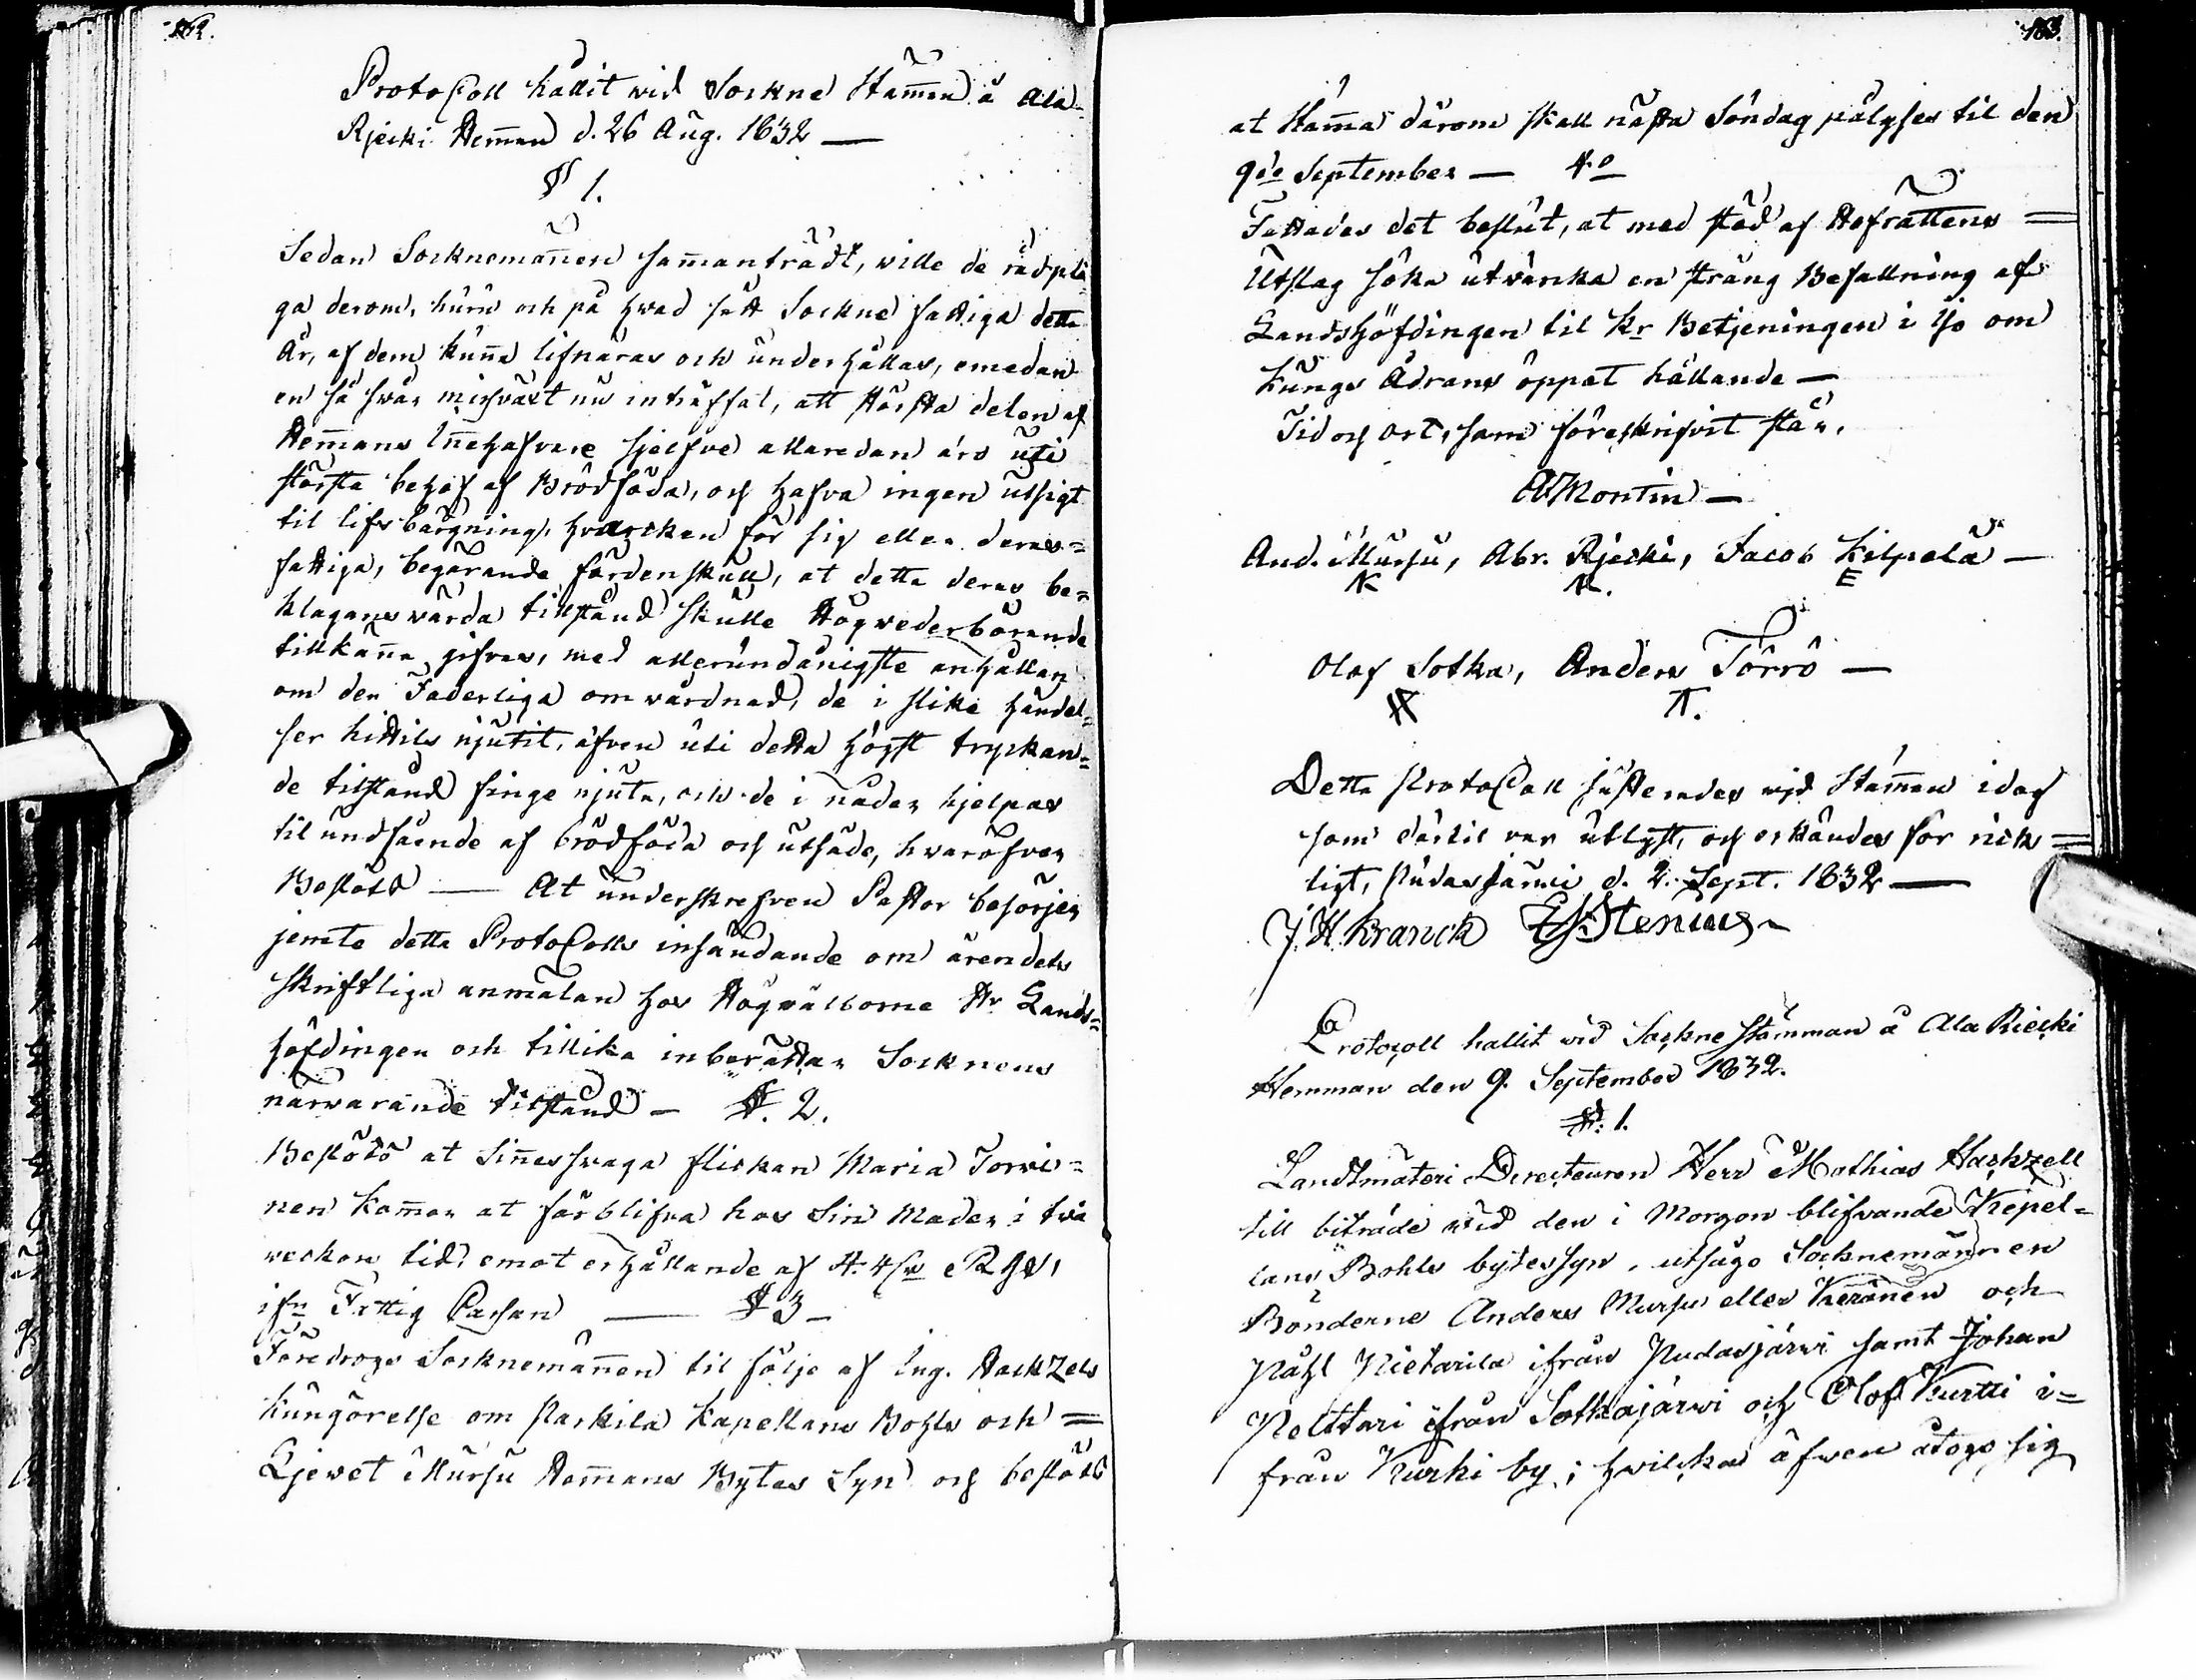 162.
ProtoColl hållit wid Sockne Stämman å Ala-
Rjecki Hemman d. 26 Aug. 1832 —
§ 1.
Sedan Socknemännen samanträdt, wille de rådplä-
ga derom, huru och på hwad sätt Sockne fattiga detta
År, af dem kunna lifnäras och underhållas, emedan
en så swår missväxt nu inträffat, att största delen af
Hemmans Innehafvare sjelfve allaredan äro uti
största behof af Brödföda, och hafva ingen utsigt
til lifsbärgning, hvarcken för sig eller deras =
fattiga, begärande fördenskull, at detta deras be=
klagansvärda tillstånd skulle Högwederbörande
tillkänna gifvas, med allerundånigste anhållan
om den Faderliga omvårdnad, de i slika händel=
ser hittils njutit, äfven uti detta högst tryckan=
de tilstånd finge njuta, och de i nåder hjelpas
til undfående af brödföda och utsäde, hwaröfver
Beslöts — At underskrefven Pastor besörjer
jemte detta ProtoColls insändande om ärendets
skriftliga anmälan hos Högwälborne Hr Lands=
höfdingen och tillika inberättar Socknens
närwarande tilstånd — §. 2.
Beslöts at Sinnesswaga flickan Maria Torwi=
nen kommer at förblifva hos Sin Moder i två
veckors tid, emot erhållande af
ifrn Fattig Cassan — § 3 —
Föredrogs Socknemännen til följe af Ing. Hackzels
kungörelse om Parkila Kapellans Bohls och =
Ljewet Mursu Hemmans Bytes Syn och beslöts
163.
at Stämma därom skall nästa Söndag pålyses til den
9de September — 4o
Fattades det beslut, at med stöd af Hofrättens =
Utslag söka utvärka en sträng Befallning af
Landshöfdingen til Kr Betjeningen i Ijo om
Kungs Ådrans öppet hållande —
Tid och ort, som föreskrifvit står.
A Montin —
And. Mursu, Abr. Rjecki, Jacob Kilpelä —
Olof Sotka, Anders Törrö —
Detta ProtoColl justerades wid Stämman idag
som därtil var utlyst, och erkändes för rick =
tigt, Pudasjärvi d. 2. Sept. 1832 —
J. H. Kranck Stenius
Protocoll hallit wid Sockne Stämman å Ala Riecki
Hemman den 9. September 1832.
§. 1.
Landtmäteri Directeuren Herr Mathias Hackzell
till biträde wid den i Morgon blifvande Kepel=
lans Bohls bytessyn, utsågo Socknemännen
Bönderne Anders Mursu eller Keränen och
Påhl Nietarila ifrån Pudasjärwi samt Johan
Pelttari ifrån Sotkajärwi och Olof Kurtti i=
från Kurki by; hvilcka äfwen åtogo sig